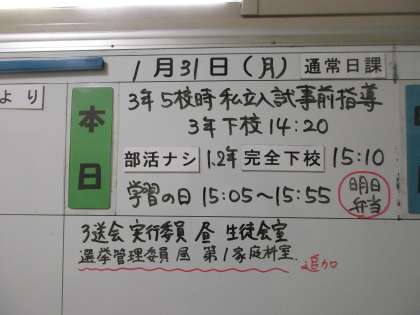 1月31日(月) 通常日課
より
本日
3年 5校時 私立入試事前指導
3年下校 14:20
部活ナシ 1.2年 完全下校 15:10
学習の日 15:05〜15:55
明日
弁当
3送会 実行委員 昼 生徒会室
選挙管理委員 昼 第1家庭科室.
追加